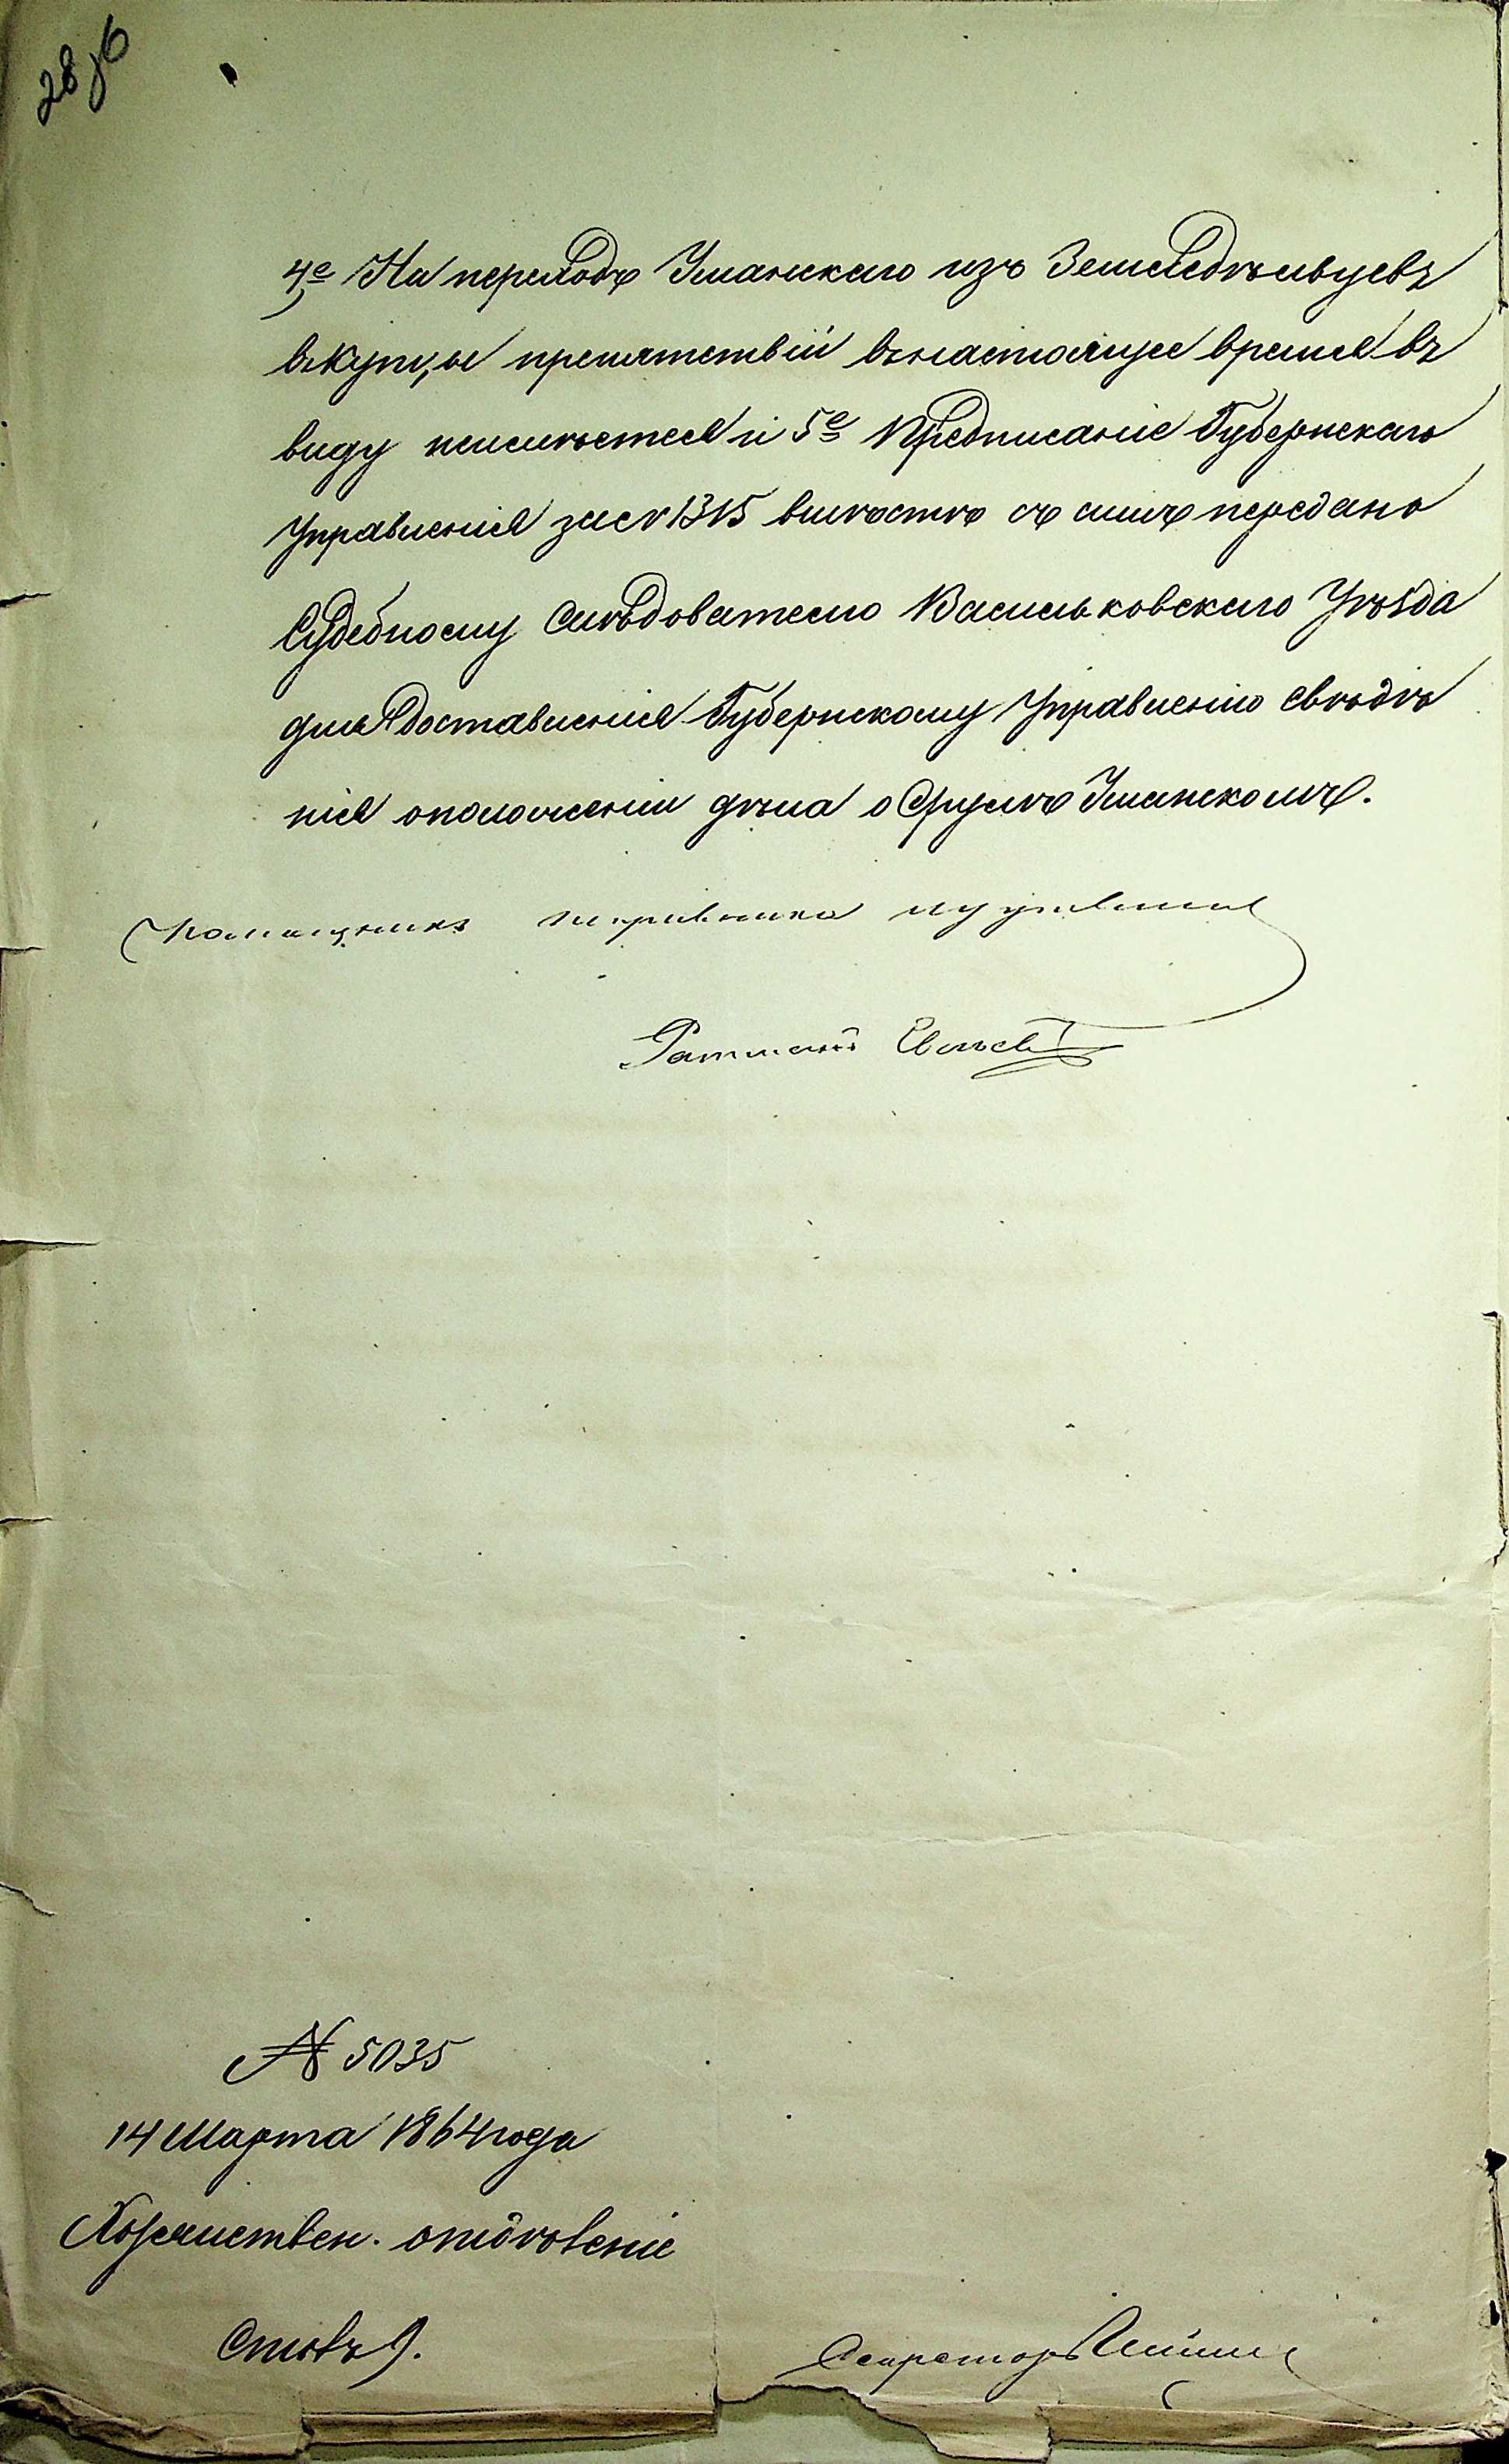 28 об
4е На переходъ Уманскаго изъ Земледѣльцевъ
въ купцы препятствій въ настоящее время въ
виду неимѣется и 5е Предписаніе Губернскаго
Управленія за № 1315 вмѣстѣ съ симъ передано
Судебному Слѣдователю Васильковскаго Уѣзда
для доставленія Губернскому Управленію свѣдѣ
нія о положеніи дѣла о Срулѣ Уманскомъ.
Помощникъ исправника
№ 5035
14 Марта 1864 года
Хозяйствен. отдѣленіе
Столъ 1.
Секретарь